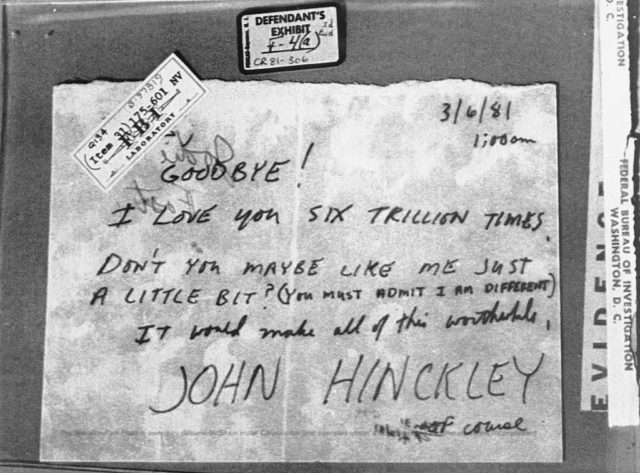 DEFENDANT'S
EXHIBIT
4-4(a)
CR 81-306
Q134
(Item 31) 175-601 NV
FBI
LABORATORY
3/6/81
1:00am
GOODBYE!
I LOVE you SIX TRILLION TIMES.
DON'T YOU MAYBE LIKE ME JUST
A LITTLE BIT? (YOU MUST ADMIT I AM DIFFERENT)
IT would make all of this worthwhile.
JOHN HINCKLEY
of course
EVIDENCE
FEDERAL BUREAU OF INVESTIGATION
WASHINGTON, D. C.